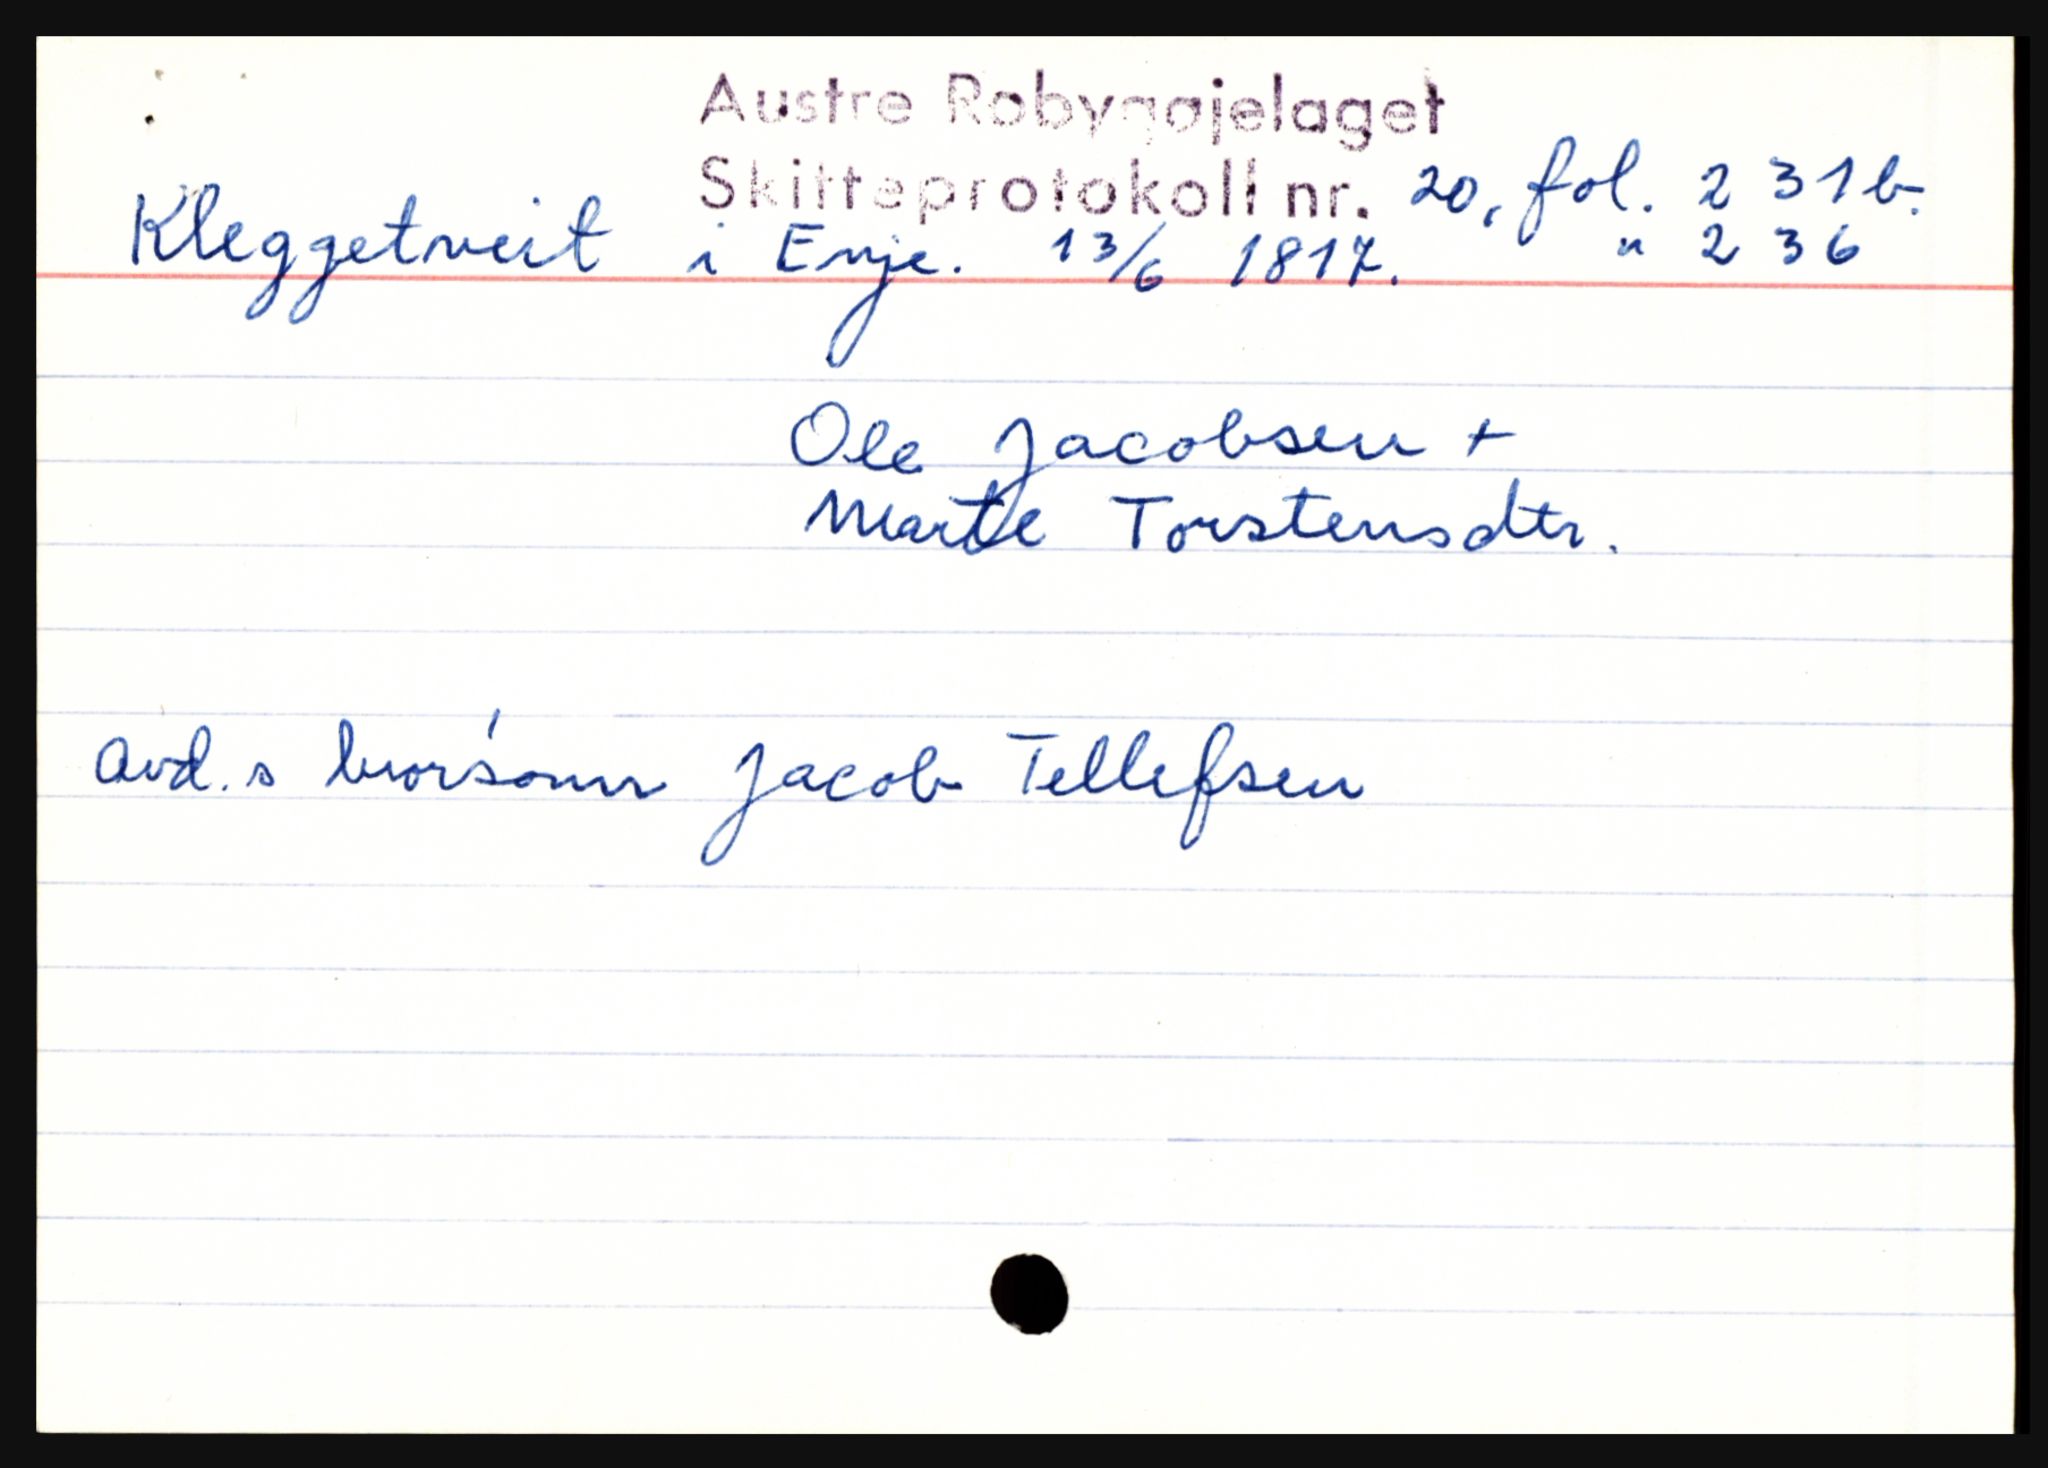 Austre Robyggjelaget
Skifteprotokoll nr. 20, fol. 231b.
Kleggetveit i Evje. 13/6 1817. " 236
Ole Jacobsen +
Marte Torstensdtr.
Avd.s bror's sønn Jacob Tellefsen